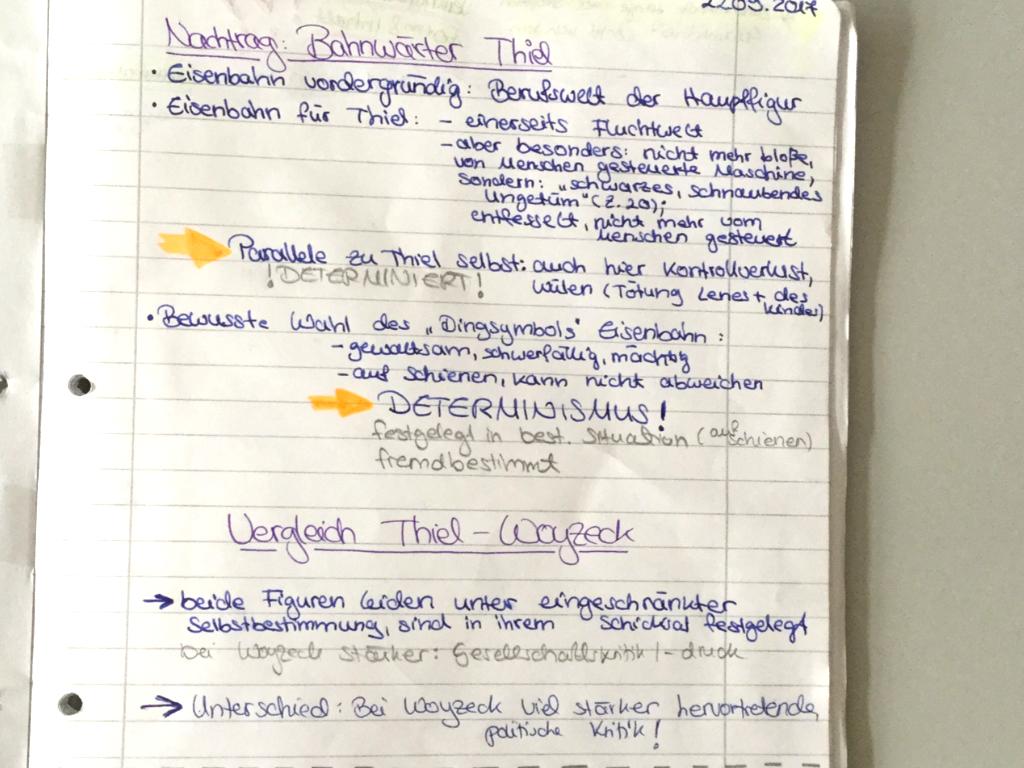 22.05.2017
Nachtrag: Bahnwärter Thiel
• Eisenbahn vordergründig: Berufswelt der Hauptfigur
• Eisenbahn für Thiel: - einerseits Fluchtwelt
- aber besonders: nicht mehr bloße,
von Menschen gesteuerte Maschine,
sondern: „schwarzes, schnaubendes
Ungetüm“ (Z. 20);
entfesselt, nicht mehr vom
Menschen gesteuert
Parallele zu Thiel selbst: auch hier Kontrollverlust,
!DETERMINIERT! wüten (Tötung Lenes + des
Kindes)
• Bewusste Wahl des „Dingsymbols“ Eisenbahn:
- gewaltsam, schwerfällig, mächtig
- auf Schienen, kann nicht abweichen
DETERMINISMUS!
festgelegt in best. Situation (auf Schienen)
fremdbestimmt
Vergleich Thiel - Woyzeck
→ beide Figuren leiden unter eingeschränkter
Selbstbestimmung, sind in ihrem Schicksal festgelegt
bei Woyzeck stärker: Gesellschaftskritik / -druck
→ Unterschied: Bei Woyzeck viel stärker hervortretende,
politische Kritik!